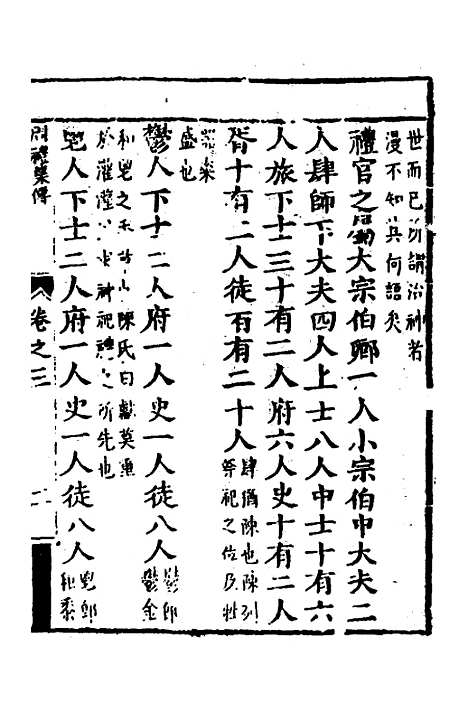 世而已所謂治神者
漫不知其何語矣
禮官之屬大宗伯卿一人小宗伯中大夫二
人肆師下大夫四人上士八人中士十有六
人旅下士三十有二人府六人史十有二人
胥十有二人徒百有二十人肆猶陳也陳列
祭祀之位及牲
器粢
盛也
鬱人下士二人府一人史一人徒八人鬱郁
鬱金
和鬯之 陳氏曰獻莫重
於灌 神祀禮之所先也
鬯人下士二人府一人史一人徒八人鬯郎
秬黍
周禮集傳
卷之三